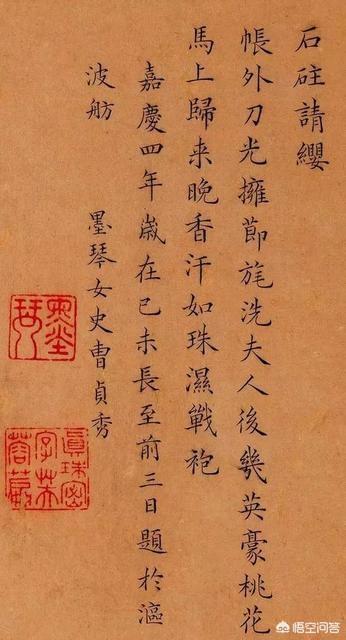 石砫請纓
帳外刀光擁節旄洗夫人後幾英豪桃花
馬上歸来晚香汗如珠濕戰袍
嘉慶四年歲在己未長至前三日題於漚
波舫
墨琴女史曹貞秀
墨琴
悟空问答